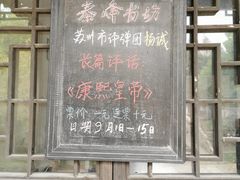 秦峰书坊
苏州市评弹团杨诚
长篇评话:
《康熙皇帝》
票价:一元 连票十元
日期9月1日—15日